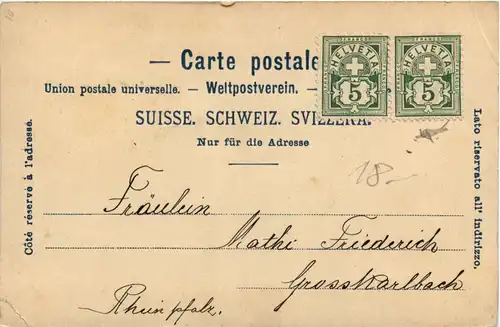 — Carte postale
Union postale universelle. — Weltpostverein. —
SUISSE. SCHWEIZ. SVIZZERA.
Nur für die Adresse
HELVETIA
5
HELVETIA
5
Côté réservé à l'adresse.
Lato riservato all' indirizzo.
18-
Fräulein
Mathi Friederich
Grosskarlbach
Rheinpfalz.